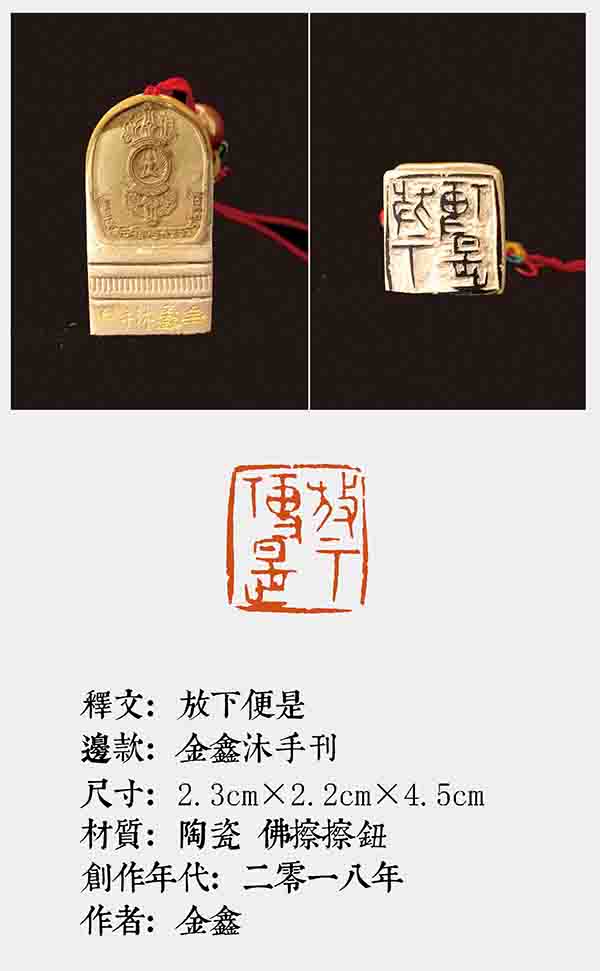 金鑫沐手刊
放下
便是
釋文：放下便是
邊款：金鑫沐手刊
尺寸：2.3cm×2.2cm×4.5cm
材質：陶瓷 佛擦擦鈕
創作年代：二零一八年
作者：金鑫